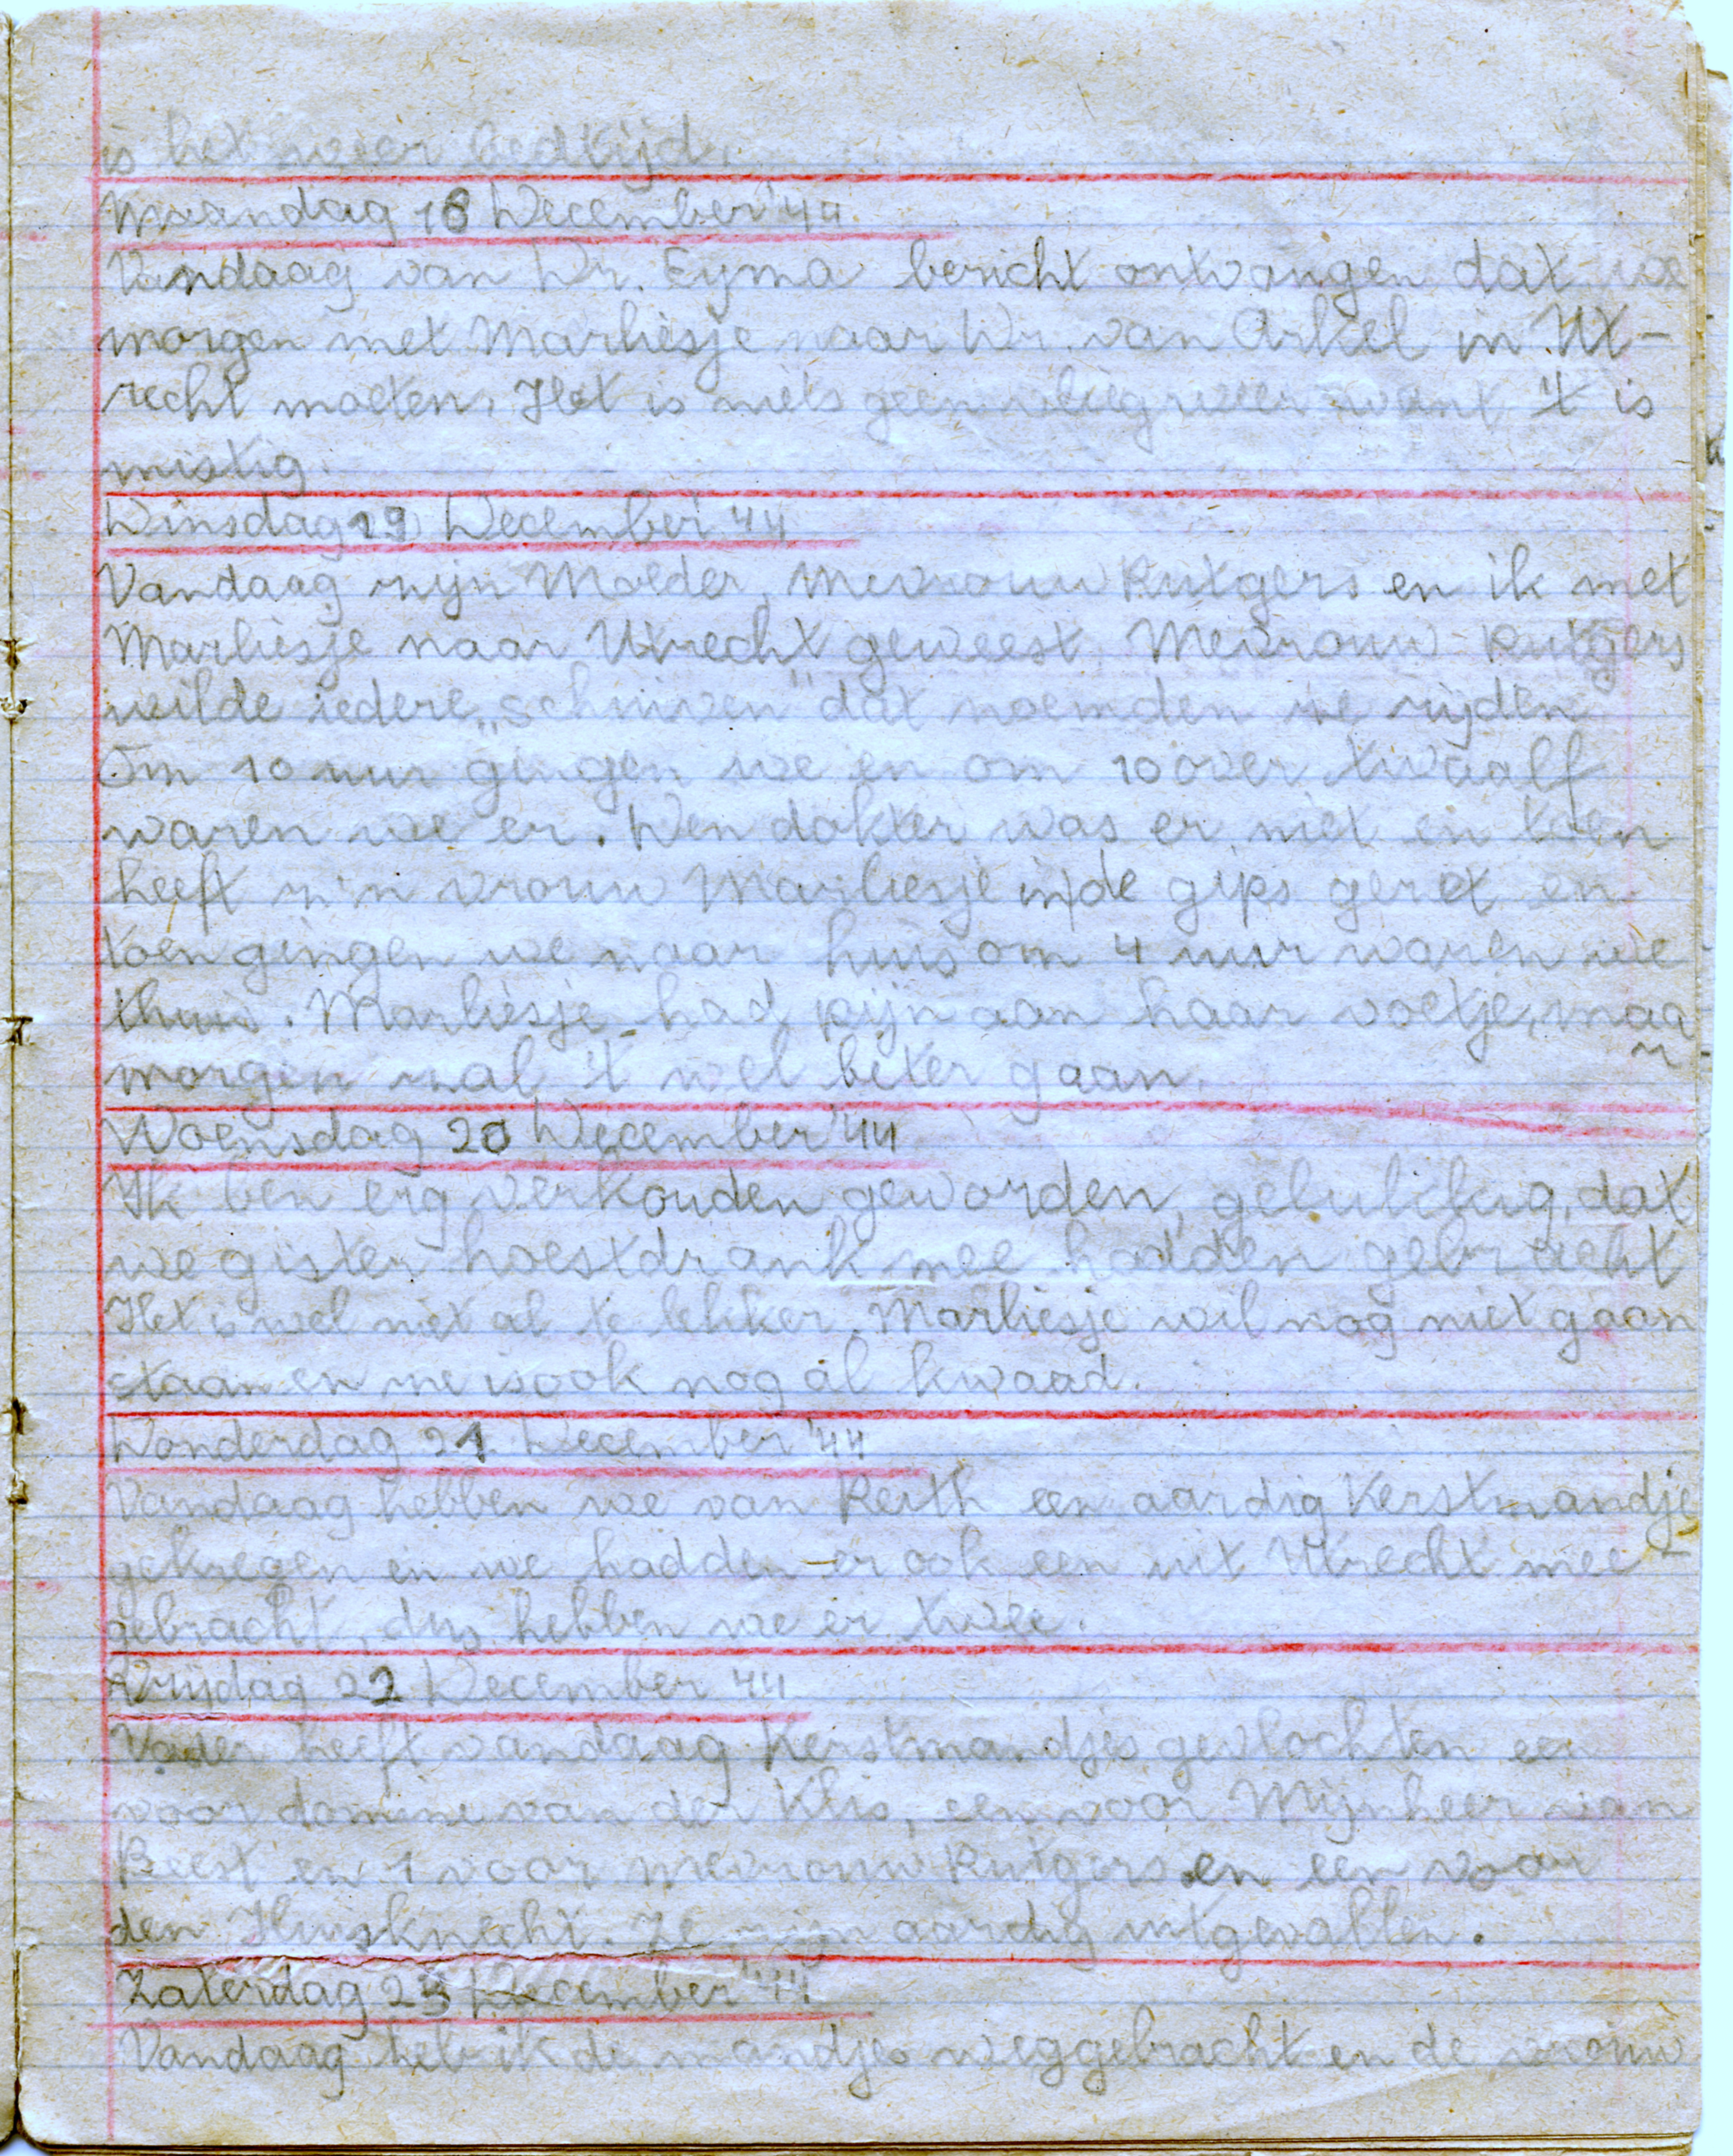 is het weer bedtijd.
Maandag 18 December '44
Vandaag van Dr. Eyma bericht ontvangen dat we
morgen met Marliesje naar Dr. van Arkel in Ut-
recht moeten. Het is niets geen vliegweer want 't is
mistig.
Dinsdag 19 December '44
Vandaag zijn Moeder, Mevrouw Rutgers en ik met
Marliesje naar Utrecht geweest. Mevrouw Rutgers
wilde iedere „schuiven" dat noemden we rijden
Om 10 uur gingen we en om 10 over twaalf
waren we er. Den dokter was er niet en toen
heeft z'n vrouw Marliesje in de gips gezet en
toen gingen we naar huis om 4 uur waren we
thuis. Marliesje had pijn aan haar voetje, maa
r
morgen zal 't wel beter gaan.
Woensdag 20 December '44
Ik ben erg verkouden geworden, gelukkig, dat
we gister hoestdrank mee hadden gebracht
Het is wel niet al te lekker. Marliesje wil nog niet gaan
staan en ze is ook nog al kwaad.
Donderdag 21 December '44
Vandaag hebben we van Reith een aardig Kerstmandje
gekregen en we hadden er ook een uit Utrecht mee-
gebracht, dus hebben we er twee.
Vrijdag 22 December '44
Vader heeft vandaag Kerstmandjes gevlochten een
voor domine van der Klis, een voor Mijnheer van
Beest en 1 voor mevrouw Rutgers en een voor
den Huisknecht. Ze zijn aardig uitgevallen.
Zaterdag 23 December '44
Vandaag heb ik de mandjes weggebracht en de vrouw